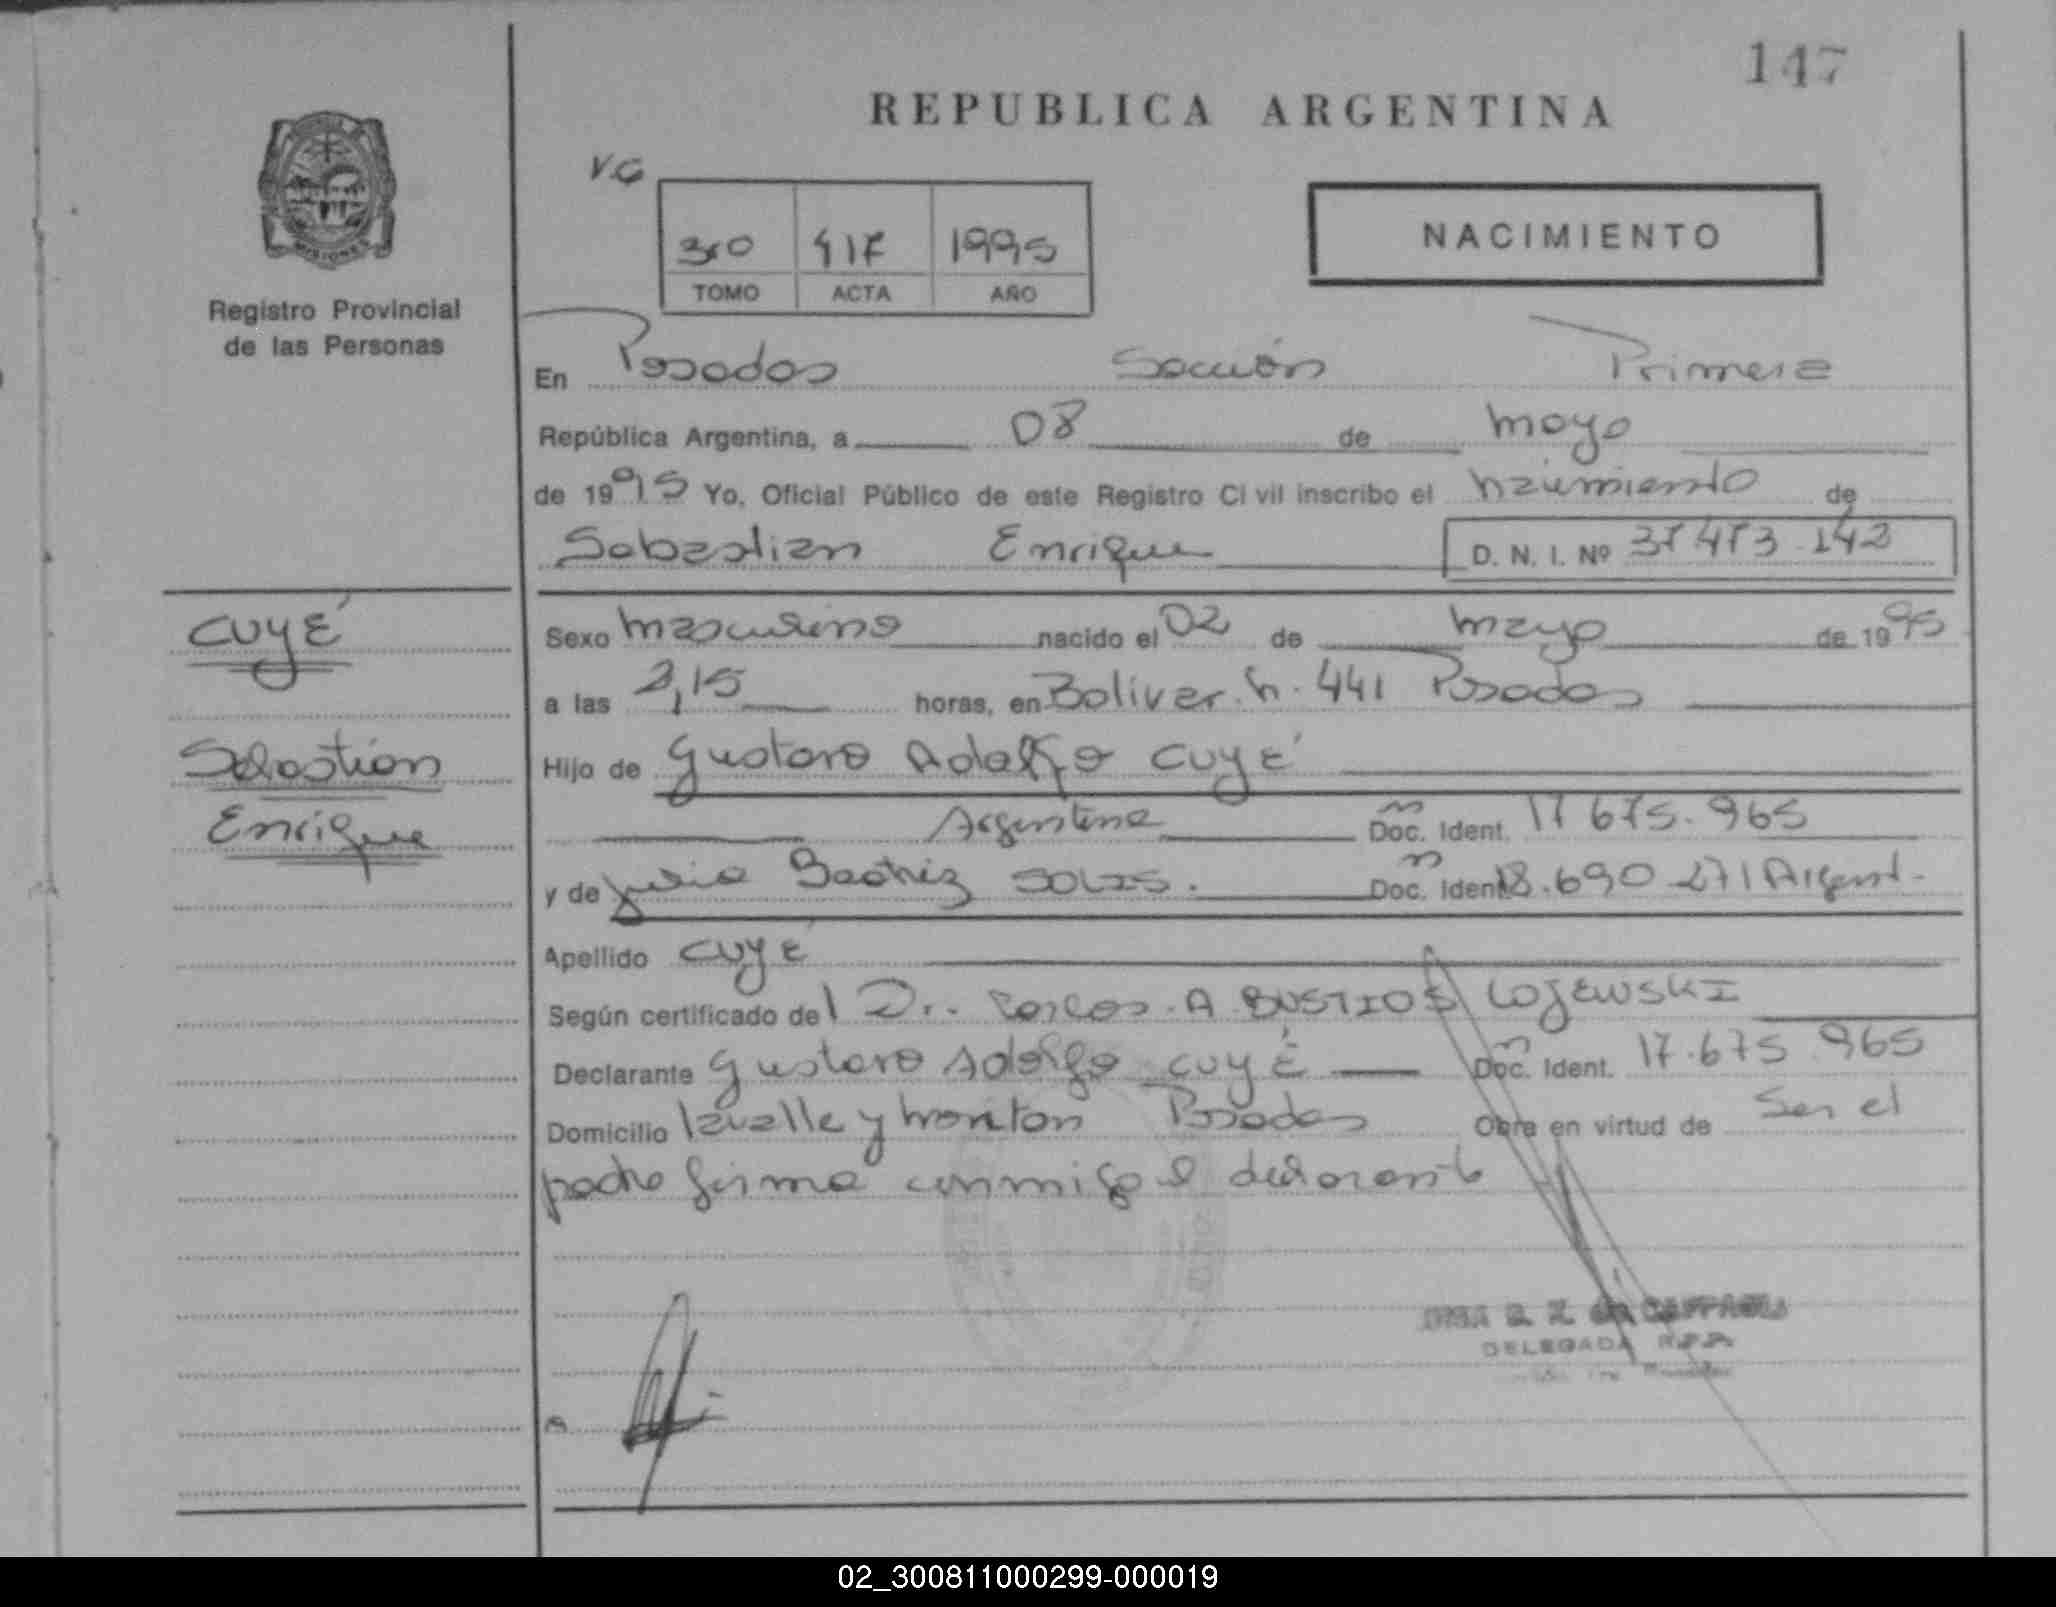 147
REPUBLICA ARGENTINA
VG
3ro 417 1995
TOMO ACTA AÑO
NACIMIENTO
MISIONES
Registro Provincial
de las Personas
En Posadas Sección Primera
República Argentina, a 08 de mayo
de 1995 Yo, Oficial Público de este Registro Civil inscribo el nacimiento de
Sebastian Enrique D. N. I. Nº 37 473 142
CUYÉ
Sebastián
Enrique
Sexo masculino nacido el 02 de mayo de 1995
a las 2,15 horas, en Bolivar n. 441 Posadas
Hijo de Gustavo Adolfo CUYÉ
Argentina Doc. Ident. 17 675.965
y de Julia Beatriz SOLIS. Doc. Ident. 18.690 271 Argent.
Apellido CUYÉ
Según certificado del Dr. Carlos A BUSTIOS LOJEWSKI
Declarante Gustavo Adolfo CUYÉ Doc. Ident. 17.675 965
Domicilio Lavalle y Posadas Obra en virtud de Ser el
padre firma conmigo el declarante
DELEGADA R.P.P.
02_300811000299-000019